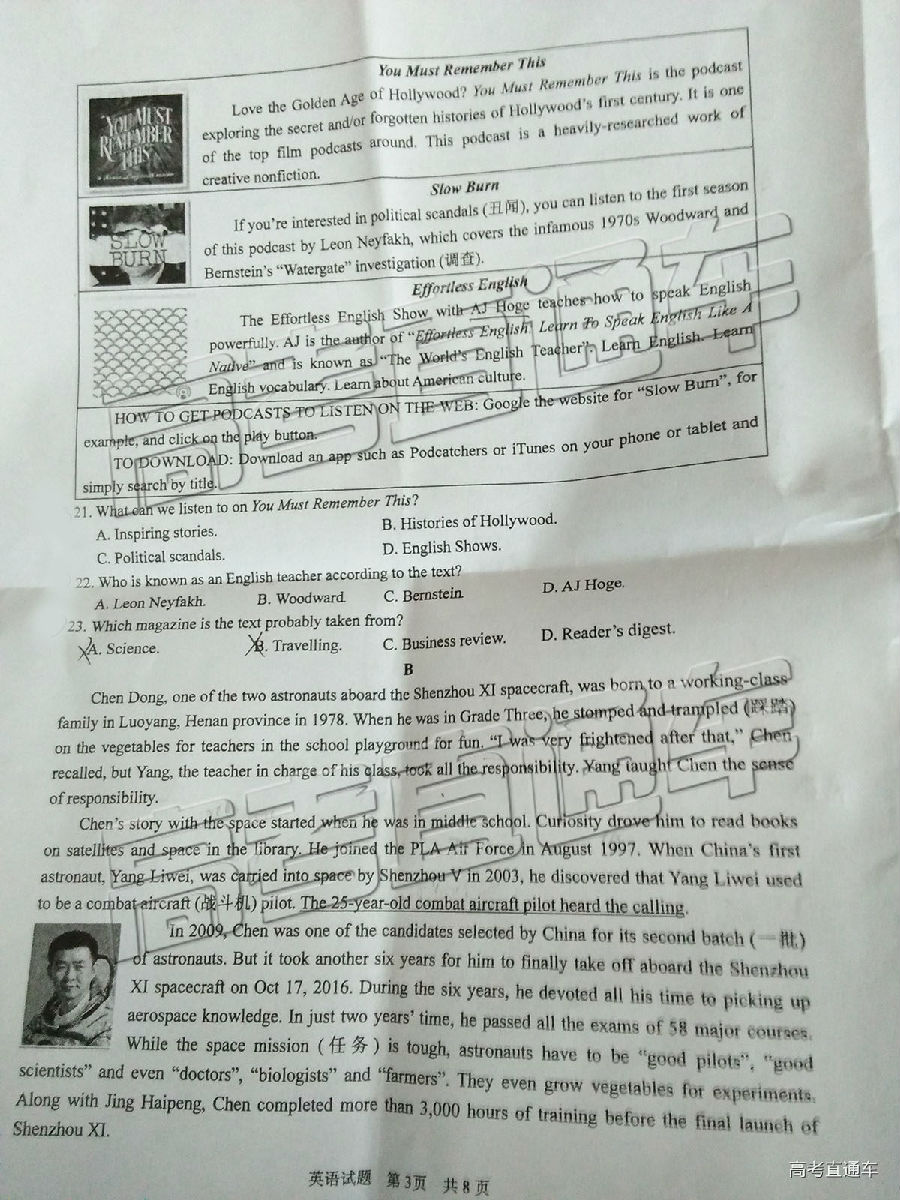 You Must Remember This
YOU MUST
REMEMBER
THIS
Love the Golden Age of Hollywood? You Must Remember This is the podcast
exploring the secret and/or forgotten histories of Hollywood's first century. It is one
of the top film podcasts around. This podcast is a heavily-researched work of
creative nonfiction.
Slow Burn
SLOW
BURN
If you're interested in political scandals (丑闻), you can listen to the first season
of this podcast by Leon Neyfakh, which covers the infamous 1970s Woodward and
Bernstein's “Watergate” investigation (调查).
Effortless English
The Effortless English Show with AJ Hoge teaches how to speak English
powerfully. AJ is the author of “Effortless English: Learn To Speak English Like A
Native” and is known as “The World's English Teacher”. Learn English. Learn
English vocabulary. Learn about American culture.
HOW TO GET PODCASTS TO LISTEN ON THE WEB: Google the website for “Slow Burn”, for
example, and click on the play button.
TO DOWNLOAD: Download an app such as Podcatchers or iTunes on your phone or tablet and
simply search by title.
21. What can we listen to on You Must Remember This?
A. Inspiring stories. B. Histories of Hollywood.
C. Political scandals. D. English Shows.
22. Who is known as an English teacher according to the text?
A. Leon Neyfakh. B. Woodward. C. Bernstein. D. AJ Hoge.
23. Which magazine is the text probably taken from?
A. Science. B. Travelling. C. Business review. D. Reader's digest.
B
Chen Dong, one of the two astronauts aboard the Shenzhou XI spacecraft, was born to a working-class
family in Luoyang, Henan province in 1978. When he was in Grade Three, he stomped and trampled (踩踏)
on the vegetables for teachers in the school playground for fun. “I was very frightened after that,” Chen
recalled, but Yang, the teacher in charge of his class, took all the responsibility. Yang taught Chen the sense
of responsibility.
Chen's story with the space started when he was in middle school. Curiosity drove him to read books
on satellites and space in the library. He joined the PLA Air Force in August 1997. When China's first
astronaut, Yang Liwei, was carried into space by Shenzhou V in 2003, he discovered that Yang Liwei used
to be a combat aircraft (战斗机) pilot. The 25-year-old combat aircraft pilot heard the calling.
In 2009, Chen was one of the candidates selected by China for its second batch (一批)
of astronauts. But it took another six years for him to finally take off aboard the Shenzhou
XI spacecraft on Oct 17, 2016. During the six years, he devoted all his time to picking up
aerospace knowledge. In just two years' time, he passed all the exams of 58 major courses.
While the space mission (任务) is tough, astronauts have to be “good pilots”, “good
scientists” and even “doctors”, “biologists” and “farmers”. They even grow vegetables for experiments.
Along with Jing Haipeng, Chen completed more than 3,000 hours of training before the final launch of
Shenzhou XI.
英语试题 第3页 共8页
高考直通车
高考直通车
高考直通车